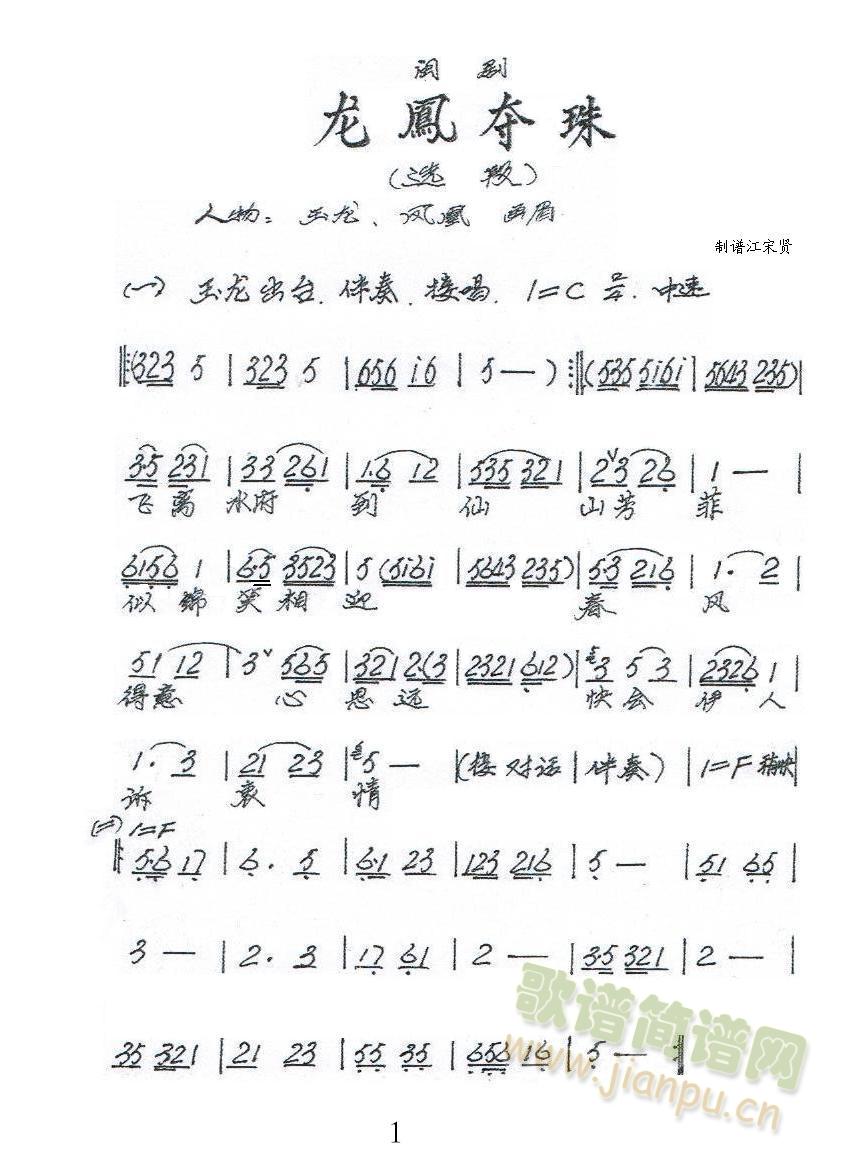 闽剧
龙鳳夺珠
(选段)
人物：玉龙、凤凰 画眉
制谱江宋贤
(一) 玉龙出台、伴奏、接唱、1=C 2/4 中速
‖:(323 5 | 323 5 | 656 i6 | 5 — ) :‖ (535 5i6i | 5643 235) |
3·5 231 | 33 261 | 1·6 12 | 535 321 | 2ˇ3 26 | 1 — |
飞离水府到仙山芳菲
6156 1 | 6·5 3523 | 5 (5i6i | 5643 235) | 5·3 216 | 1· 2 |
似锦笑相迎 春风
51 12 | 3ˇ 565 | 321 2·(3 | 2321 612) | 3 5 3 | 2326 1 |
得意心思远 快会伊人
1· 3 | 21 23 | 5 — | (接对话 | 伴奏) | 1=F 稍快 |
诉衷情
(二) 1=F
‖: 5·6 17 | 6· 5 | 6·1 23 | 123 216 | 5 — | 51 65 |
3 — | 2· 3 | 17 61 | 2 — | 3·5 321 | 2 — |
35 321 | 21 23 | 55 35 | 656 16 | 5 — :‖
歌谱简谱网
www.jianpu.cn
1